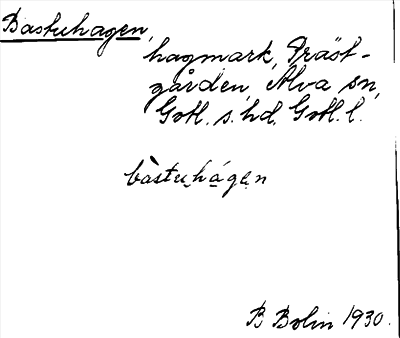 Bastuhagen,
hagmark, Präst-
gården, Alva sn,
Gotl. s. hd, Gotl. l.
bàstu̬hága̬n
B Bolin 1930.